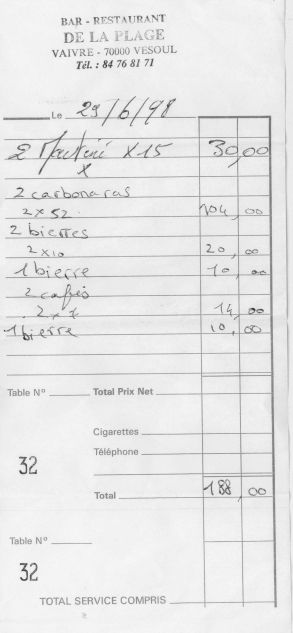 BAR - RESTAURANT
DE LA PLAGE
VAIVRE - 70000 VESOUL
Tél. : 84 76 81 71
Le 29/6/98
2 Martini x 15 30,00
x
2 carbonaras
2 x 52 104,00
2 bierres
2 x 10 20,00
1 bierre 10,00
2 cafés
2 x 7 14,00
1 bierre 10,00
Table N° Total Prix Net
Cigarettes
Téléphone
32
Total 188,00
Table N°
32
TOTAL SERVICE COMPRIS